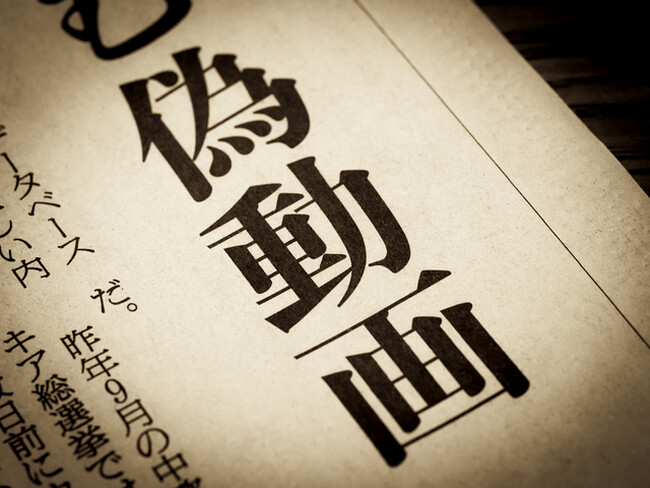 偽動画
データベース
い内
だ。
昨年9月の中
キア総選挙で
日前に